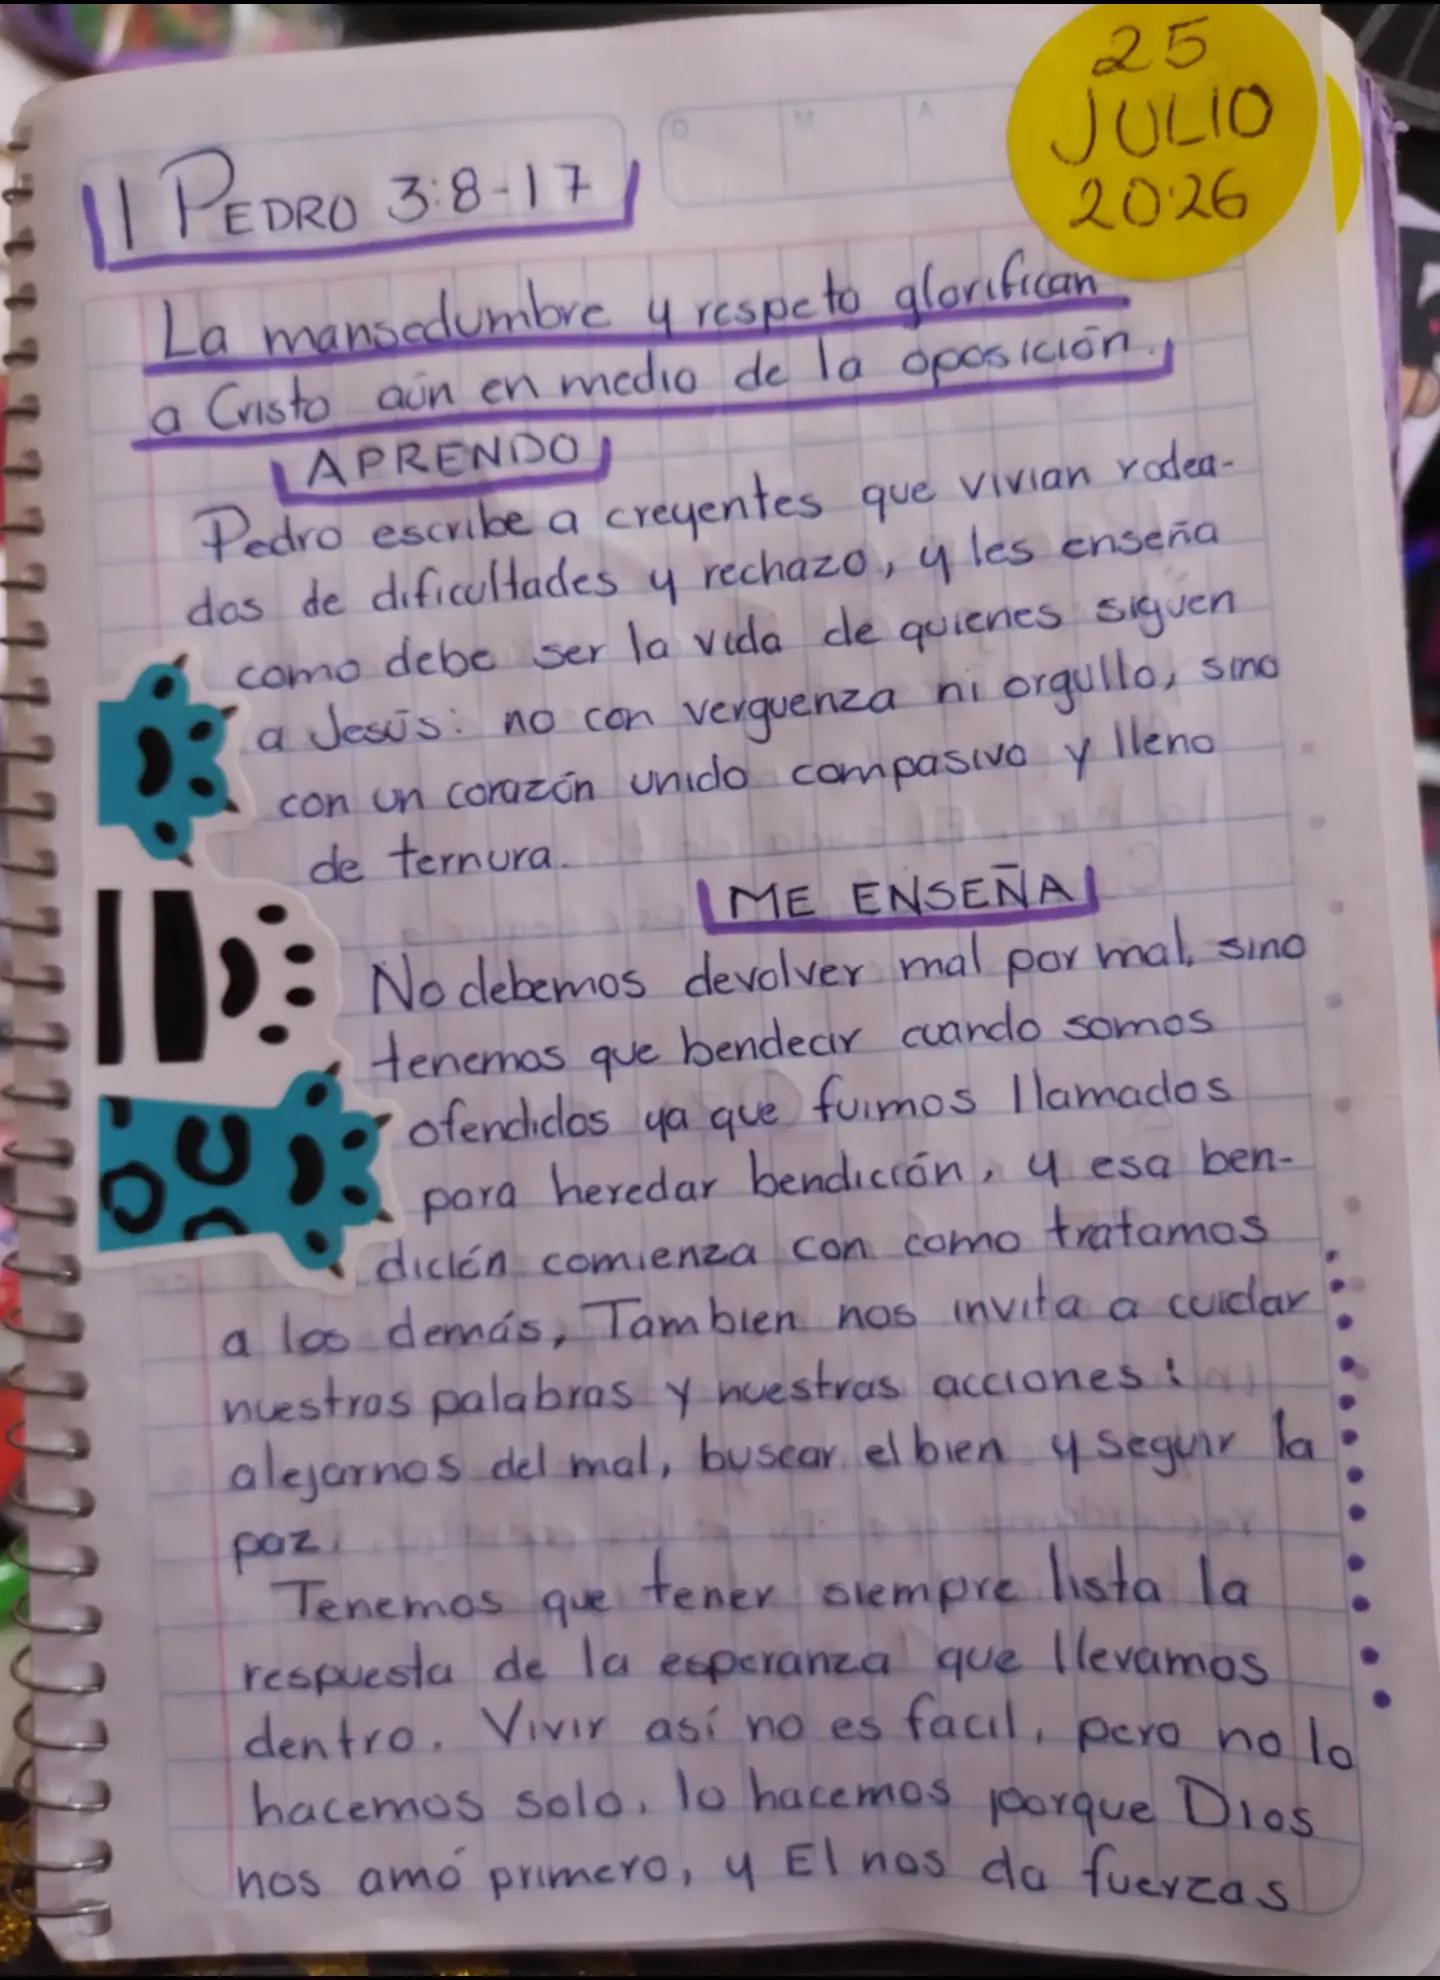 25
JULIO
20·26
D M A
1 PEDRO 3:8-17
La mansedumbre y respeto glorifican
a Cristo aún en medio de la oposición.
APRENDO
Pedro escribe a creyentes que vivian rodea-
dos de dificultades y rechazo, y les enseña
como debe ser la vida de quienes siguen
a Jesús: no con verguenza ni orgullo, sino
con un corazón unido compasivo y lleno
de ternura.
ME ENSEÑA
No debemos devolver mal por mal, sino
tenemos que bendecir cuando somos
ofendidos ya que fuimos llamados
para heredar bendicción, y esa ben-
dición comienza con como tratamos
a los demás, Tambien nos invita a cuidar
nuestras palabras y nuestras acciones:
alejarnos del mal, buscar el bien y seguir la
paz.
Tenemos que tener siempre lista la
respuesta de la esperanza que llevamos
dentro. Vivir así no es facil, pero no lo
hacemos solo, lo hacemos porque Dios
nos amó primero, y El nos da fuerzas